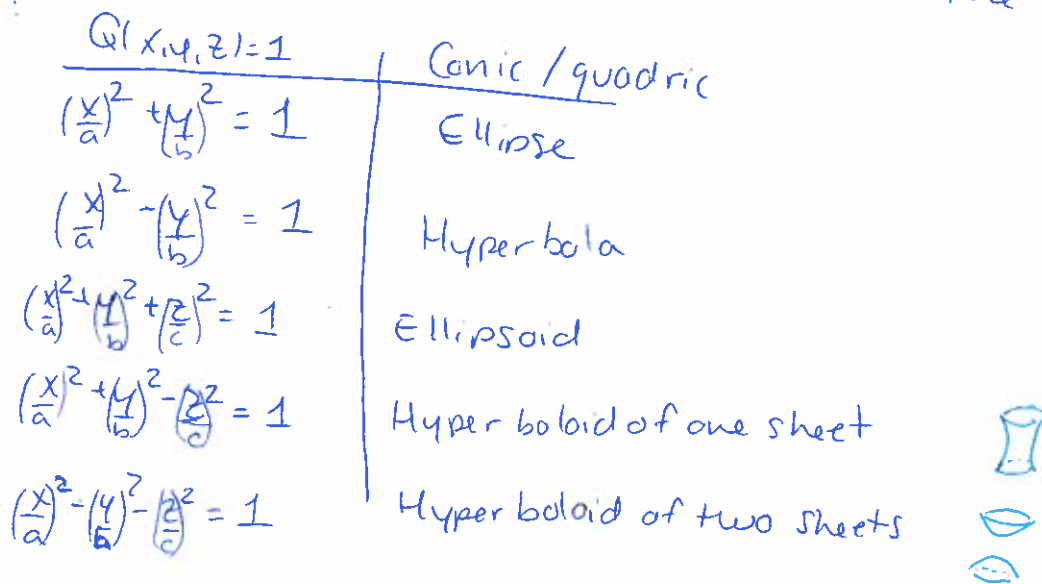 Q(x,y,z)=1 Conic / quadric
(x/a)² + (y/b)² = 1 Ellipse
(x/a)² - (y/b)² = 1 Hyperbola
(x/a)² + (y/b)² + (z/c)² = 1 Ellipsoid
(x/a)² + (y/b)² - (z/c)² = 1 Hyperboloid of one sheet
(x/a)² - (y/b)² - (z/c)² = 1 Hyperboloid of two sheets